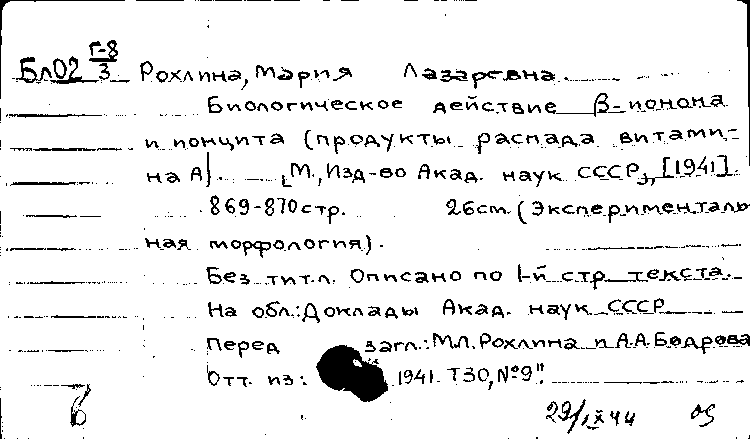 Бл02 Г-8/3 Рохлина, Мария Лазаревна.
Биологическое действие β-ионона
и ионцита (продукты распада витами-
на А). [М., Изд-во Акад. наук СССР], [1941].
869-870 стр. 26 cm. (Эксперименталь
ная морфология).
Без тит.л. Описано по 1-й стр. текста.
На обл.: Доклады Акад. наук СССР
Перед загл.: М.Л. Рохлина и А.А. Бодрова
Отт. из: 1941. Т30, №9".
29/IX 44